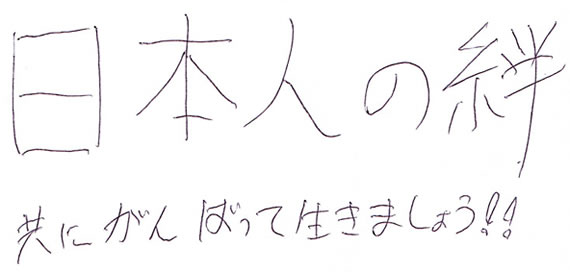 日本人の絆
共にがんばって生きましょう!!